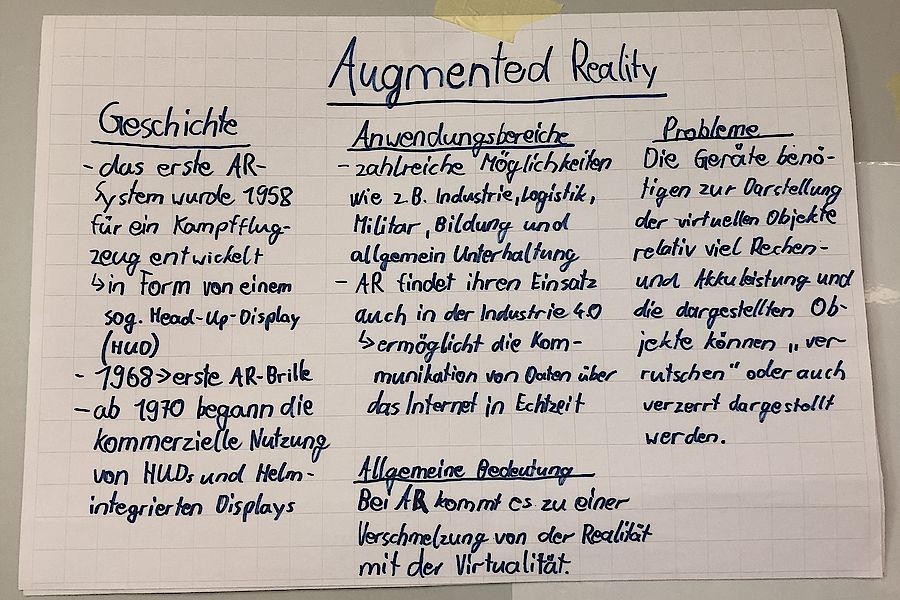 Augmented Reality
Geschichte
- das erste AR-
System wurde 1958
für ein Kampfflug-
zeug entwickelt
↳ in Form von einem
sog. Head-Up-Display
(HUD)
- 1968 → erste AR-Brille
- ab 1970 begann die
kommerzielle Nutzung
von HUDs und Helm-
integrierten Displays
Anwendungsbereiche
- zahlreiche Möglichkeiten
wie z.B. Industrie, Logistik,
Militär, Bildung und
allgemein Unterhaltung
- AR findet ihren Einsatz
auch in der Industrie 4.0
↳ ermöglicht die Kom-
munikation von Daten über
das Internet in Echtzeit
Allgemeine Bedeutung
Bei AR kommt es zu einer
Verschmelzung von der Realität
mit der Virtualität.
Probleme
Die Geräte benö-
tigen zur Darstellung
der virtuellen Objekte
relativ viel Rechen-
und Akkuleistung und
die dargestellten Ob-
jekte können „ver-
rutschen" oder auch
verzerrt dargestellt
werden.